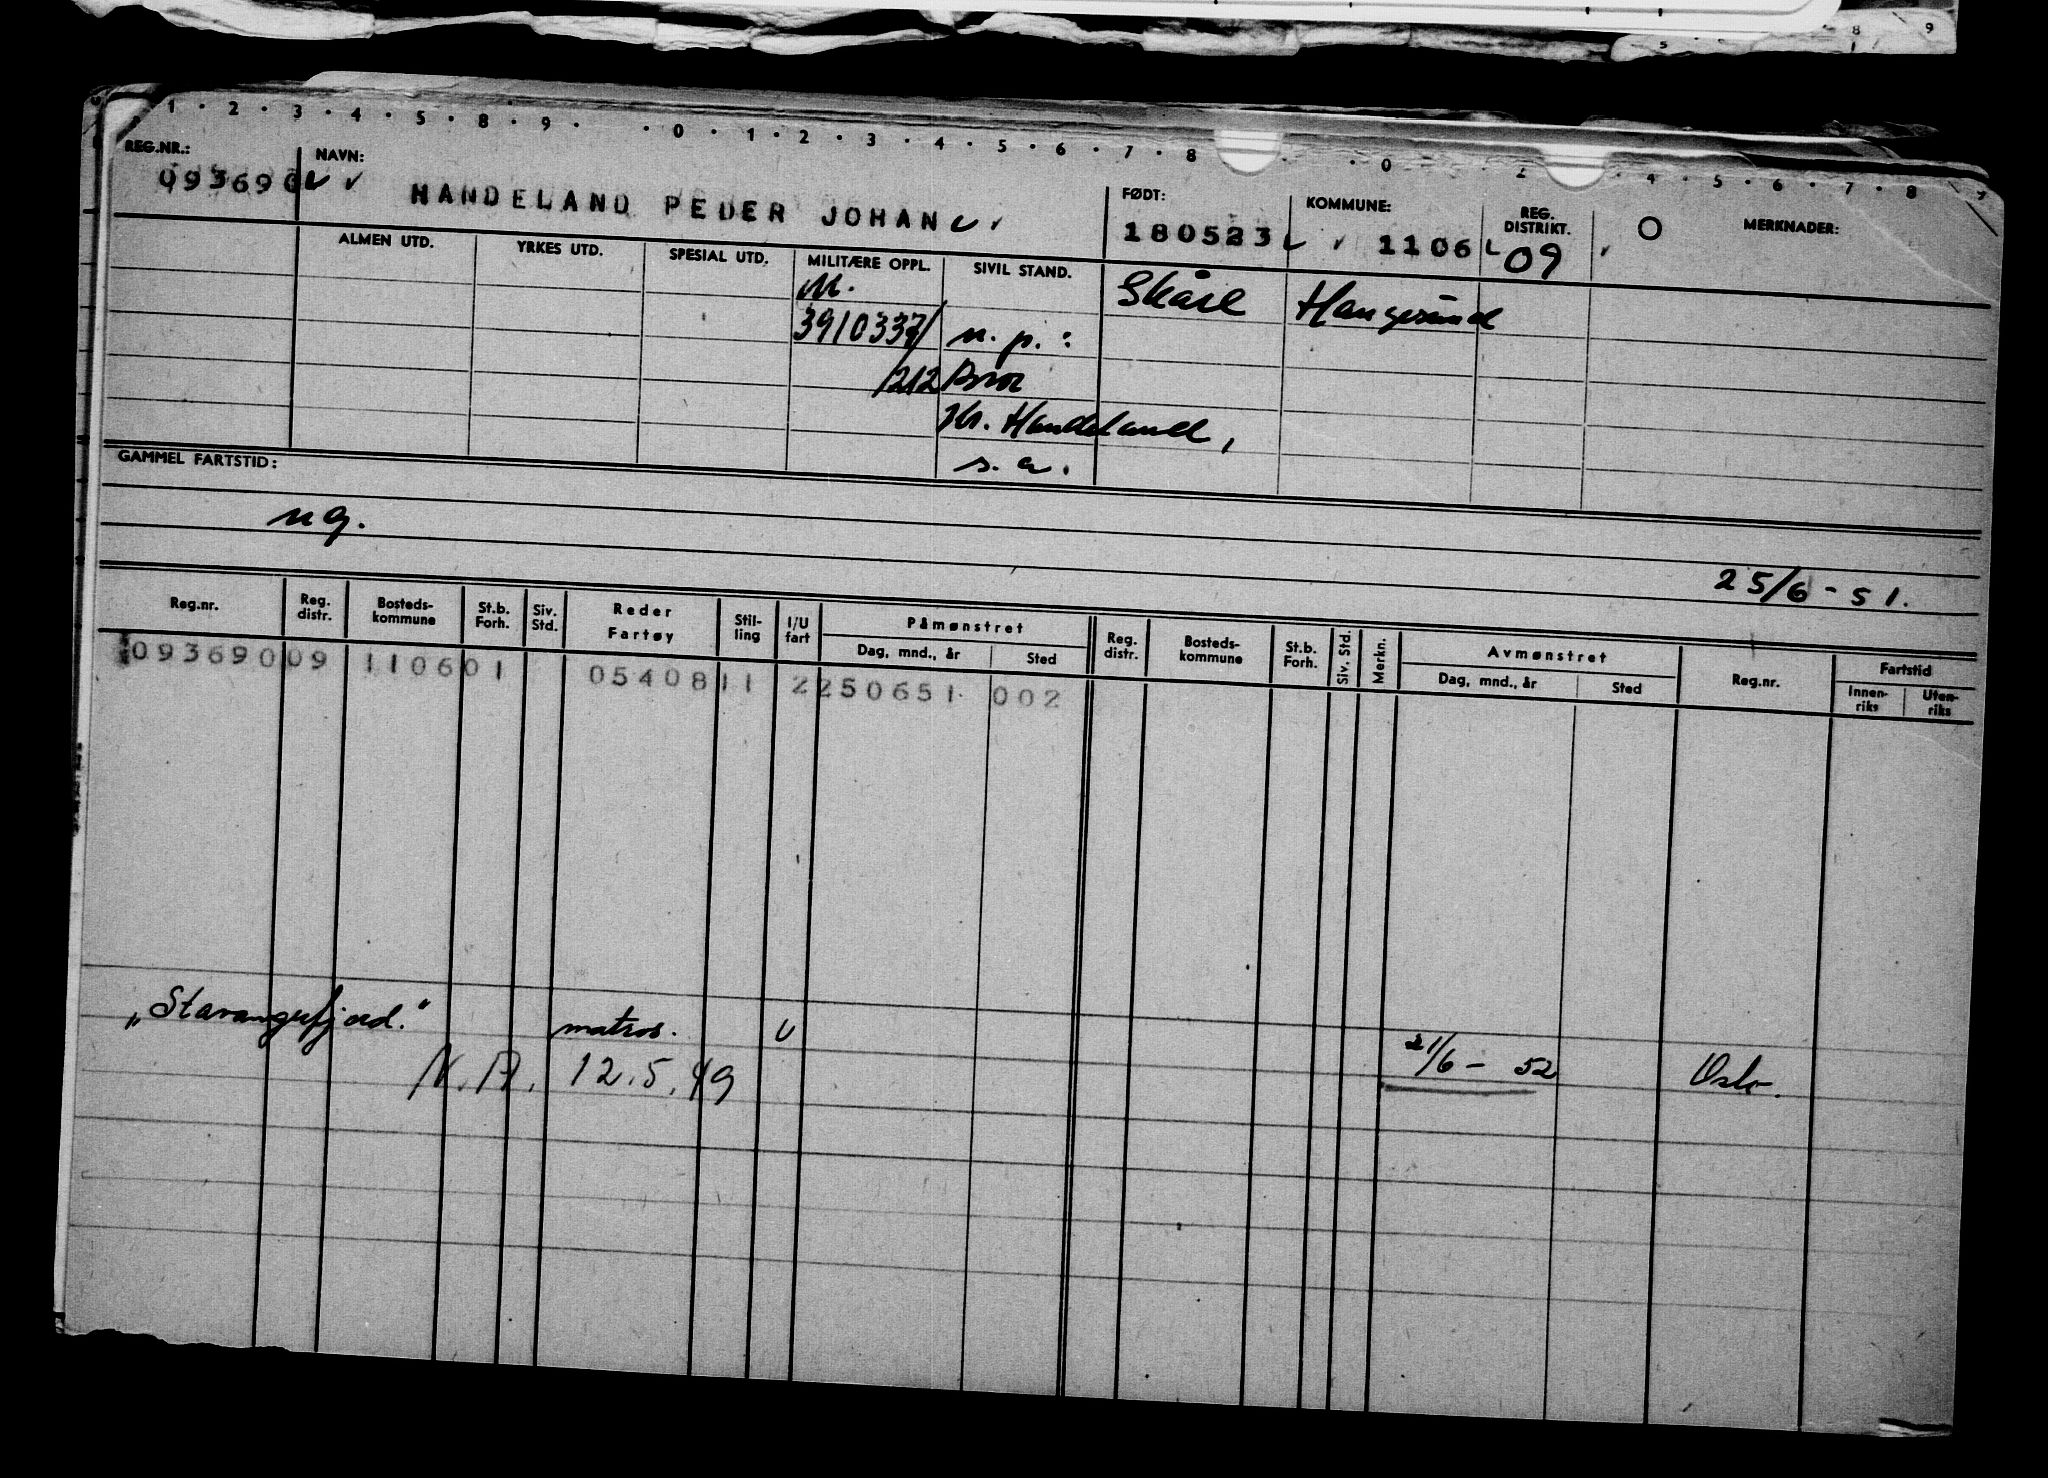 8 9
5
1 · 2 · 3 · 4 · 5 · 8 · 9 · · 0 · 1 · 2 · 3 · 4 · 5 · 6 · 7 · 8 · 0 · 2 · 4 · 5 · 6 · 7 · 8
REG.NR.: NAVN: FØDT: KOMMUNE: REG. DISTRIKT. MERKNADER:
093690 HANDELAND PEDER JOHAN 180523 1106 09
ALMEN UTD. YRKES UTD. SPESIAL UTD. MILITÆRE OPPL. SIVIL STAND.
M. Skåre Haugesund
3910337/ n. p. :
/212 Bror
Handeland,
s. a.
GAMMEL FARTSTID:
ng.
25/6 - 51.
Reg.nr. Reg. distr. Bosteds-kommune St.b. Forh. Siv. Std. Reder Fartøy Stil-ling I/U fart Påmønstret Dag, mnd., år Sted Reg. distr. Bosteds-kommune St.b. Forh. Siv. Std. Merkn. Avmønstret Dag, mnd., år Sted Reg.nr. Fartstid Innen-riks Uten-riks
093690 09 1106 01 05408 11 2 250651 002
„Stavangerfjord." matros. U
21/6 - 52 Oslo.
N.A. 12.5.49